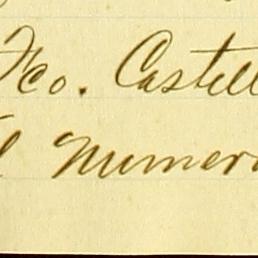 Fco. Castell
l Numer